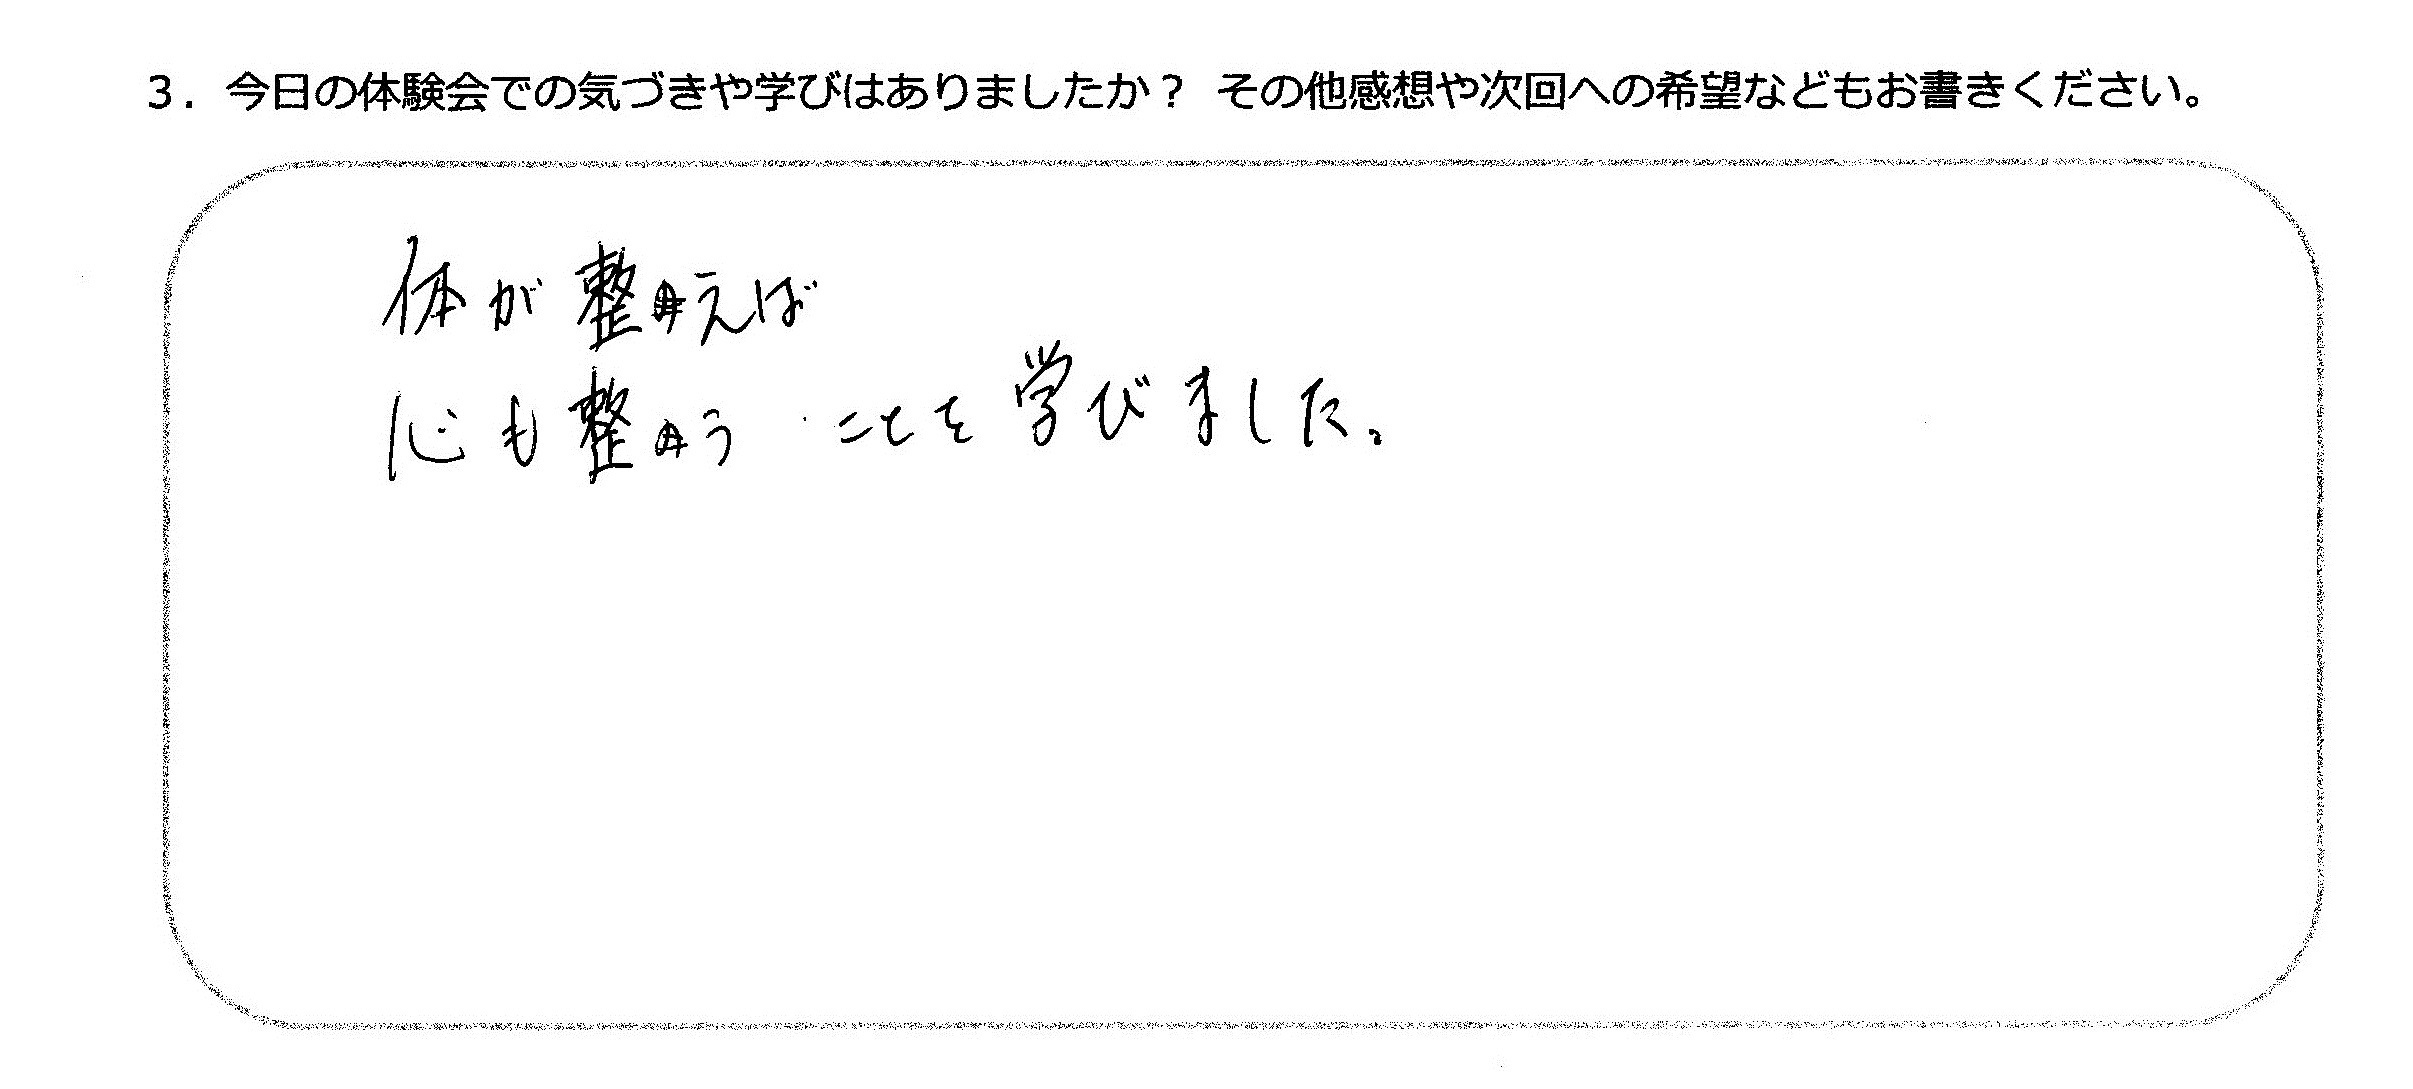 3. 今日の体験会での気づきや学びはありましたか？ その他感想や次回への希望などもお書きください。
体が整えば
心も整う ことを学びました。